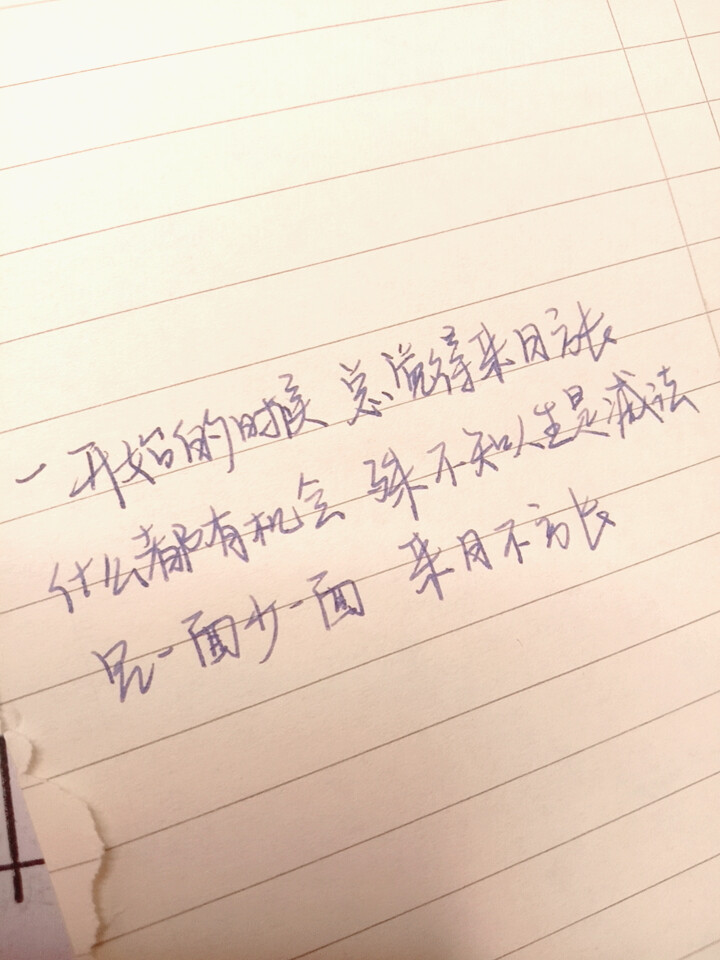 一开始的时候 总觉得来日方长
什么都有机会 殊不知人生是减法
见一面少一面 来日不方长